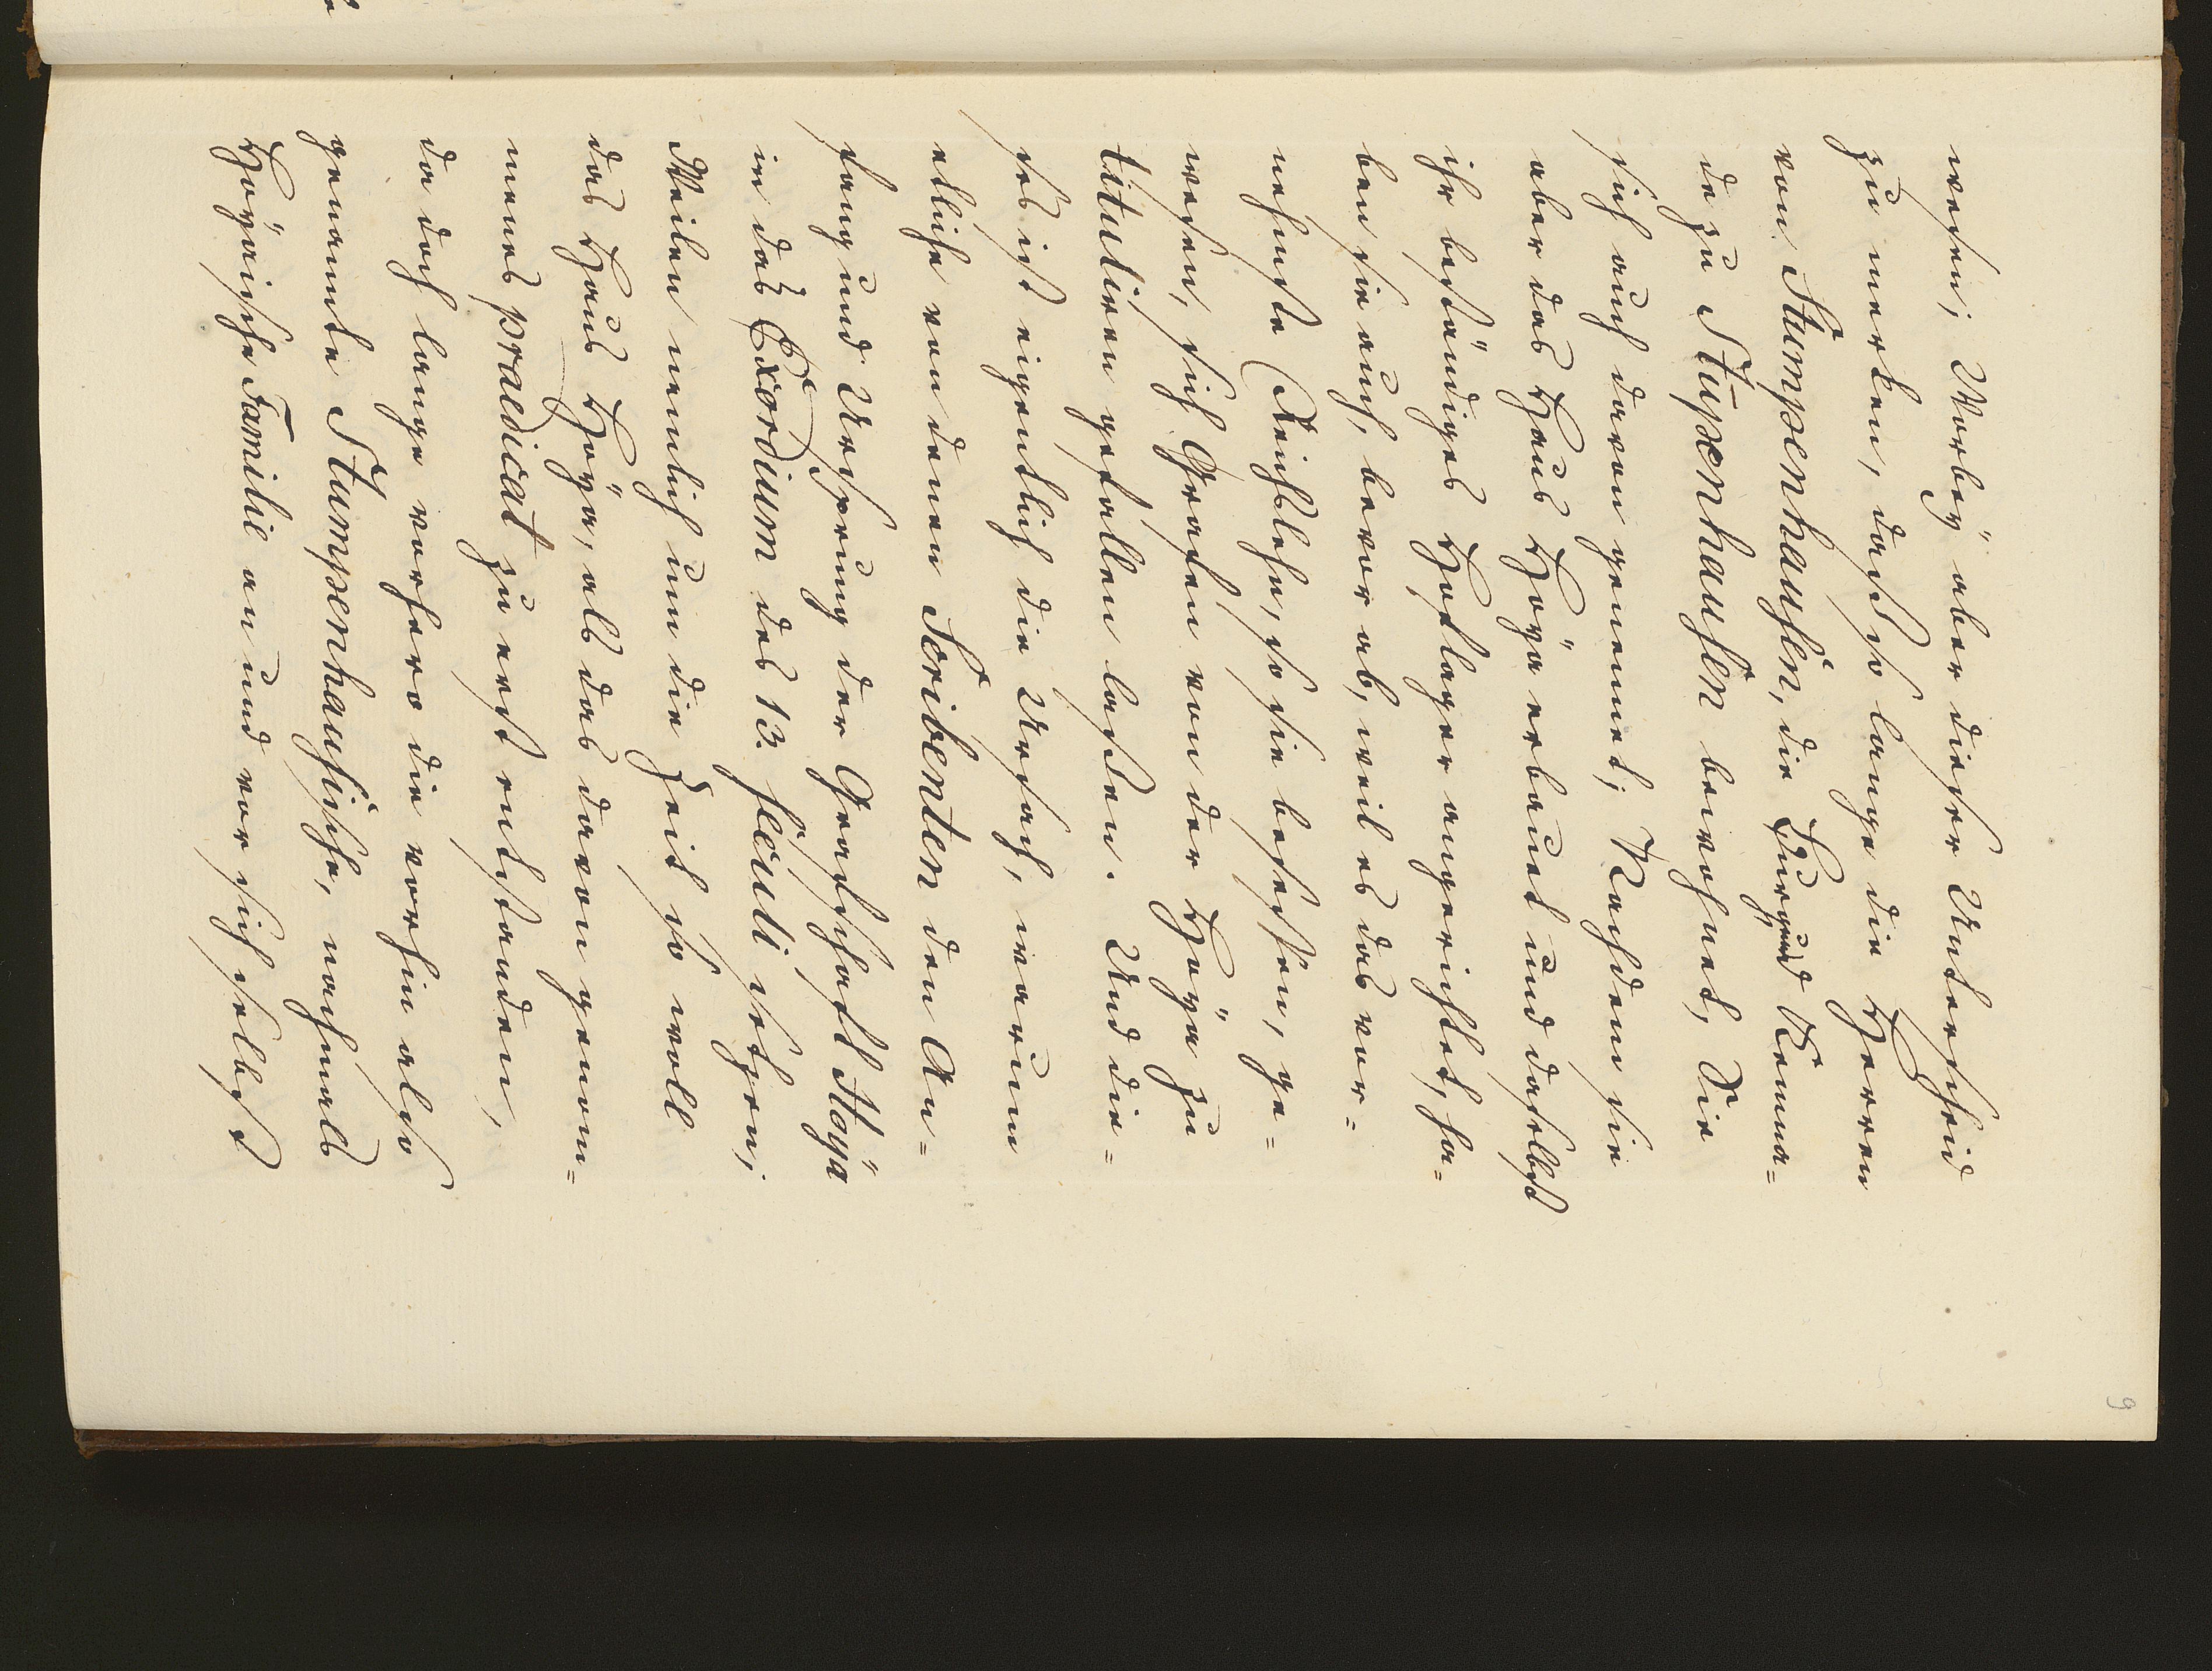 wesen; Worbeÿ aber dieser Unterscheid
zu merken, daß so lange die Herren
von Stumpenhausen, die Burg und Kemna=
de zu Stupenhausen bewohnet, Sie
sich auch davon genennet; Nachdem sie
aber das Haus Hoÿa erbauet und daselbst
ihr beständiges Hoflager angerichtet, ha=
ben sie auch, bevor ab, weil es das vor=
nehmste Reichslehn, so sie besessen, ge=
wesen, sich Grafen von der Hoÿa zu
tituliren gefallen laßen. Und die=
ses ist eigentlich die Ursach, warum
etliche von denen Scribenten den An=
fang und Ursprung der Grafschaft Hoÿa
in das Exordium des 13. seculi setzen;
Weilen nemlich um die Zeit so woll
das Haus Hoÿa, als das davon genom=
menes praedicat zu erst entstanden,
da doch lange vorhero die vorhin also
genannte Stumpenhausische, nachmals
Hoÿaische Familie an und vor sich selbst
9